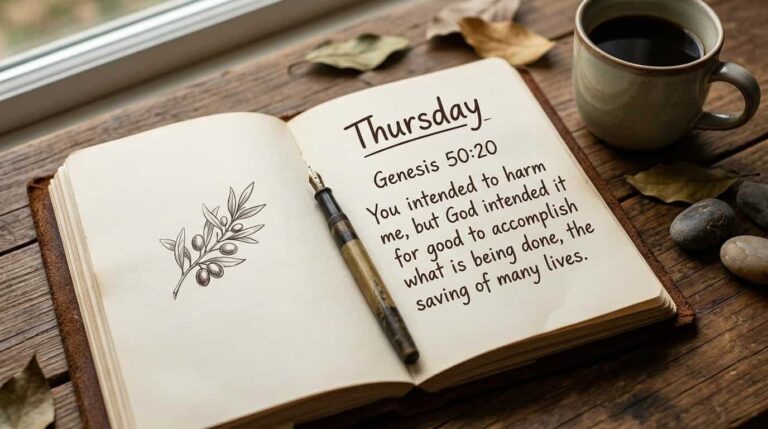 Thursday
Genesis 50:20
You intended to harm
me, but God intended it
for good to accomplish
what is being done, the
saving of many lives.